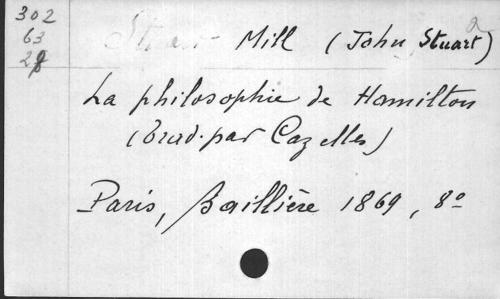 302
63
Mill (John Stuart)
La philosophie de Hamilton
(trad. par Cazelles)
Paris, Baillière 1869, 8º